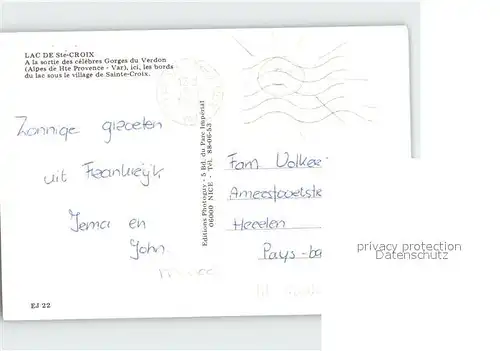 LAC DE Ste-CROIX
A la sortie des célèbres Gorges du Verdon
(Alpes de Hte Provence - Var), ici, les bords
du lac sous le village de Sainte-Croix.
Zonnige groeten
uit Frankrijk
en
John
EJ 22
Editions Photoguy - 5 Bd. du Parc Impérial
06000 NICE - Tél. 88-06-53
Fam Volker
Heerlen
Pays-ba
privacy protection
Datenschutz